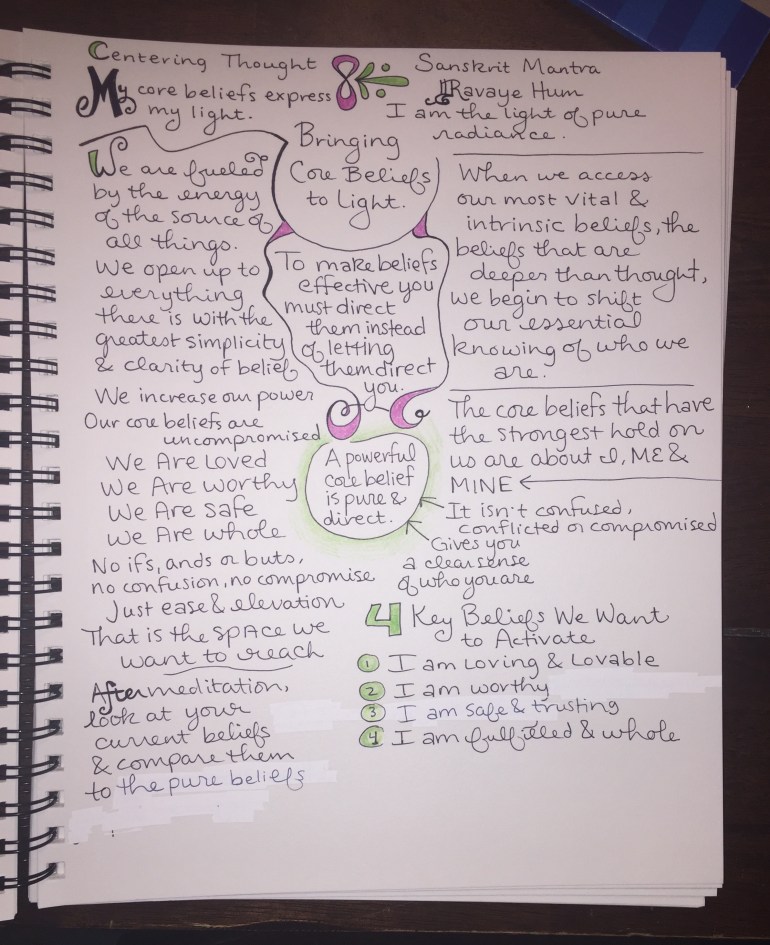 Centering Thought
My core beliefs express
my light.
Sanskrit Mantra
Ravaye Hum
I am the light of pure
radiance.
Bringing
Core Beliefs
to Light.
To make beliefs
effective you
must direct
them instead
of letting
them direct
you.
A powerful
core belief
is pure &
direct.
We are fueled
by the energy
of the source of
all things.
We open up to
everything
there is with the
greatest simplicity
& clarity of belief
We increase our power
Our core beliefs are
uncompromised
We Are Loved
We Are Worthy
We Are Safe
We Are whole
No ifs, ands or buts,
no confusion, no compromise
Just ease & elevation
That is the SPACe we
want to reach
After meditation,
look at your
current beliefs
& compare them
to the pure beliefs
When we access
our most vital &
intrinsic beliefs, the
beliefs that are
deeper than thought,
we begin to shift
our essential
knowing of who we
are.
The core beliefs that have
the strongest hold on
us are about I, ME &
MINE
It isn't confused,
conflicted or compromised
Gives you
a clear sense
of who you are
4 Key Beliefs We Want
to Activate
1 I am Loving & Lovable
2 I am worthy
3 I am safe & trusting
4 I am fulfilled & whole